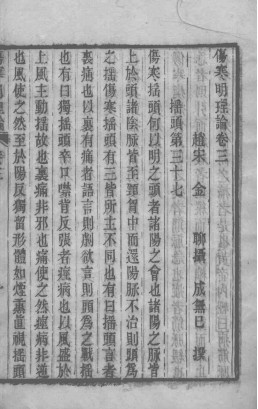 傷寒明理論卷三
趙宋 金 聊攝 成無已 撰
搖頭第三十七
傷寒搖頭何以明之頭者諸陽之會也諸陽之脉皆
上於頭諸陰脉皆至頸胷中而還陽脉不治則頭爲
之搖傷寒搖頭有三皆所主不同也有曰搖頭言者
裏痛也以裏有痛者語言則劇欲言則頭爲之戰搖
也有曰獨搖頭卒口噤背反張者痙病也以風盛於
上風主動搖故也裏痛非邪也痛使之然痙病非逆
也風使之然至於陽反獨留形體如煙薰直視搖頭